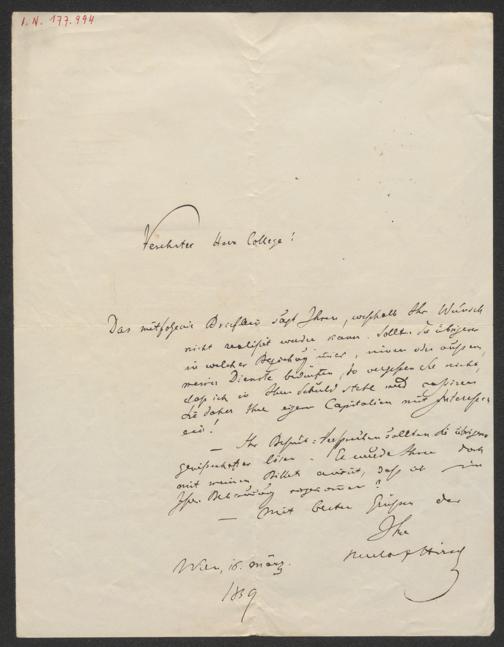 I. N. 177.994
Verehrter Herr College!
Das mitfolgende sagt Ihnen, weßhalb Ihr Wunsch
nicht realisirt werden kann. Sollten Sie übrigens
in welcher Beziehung immer, innen oder außen,
meiner Dienste bedürfen, so vergessen Sie nicht,
daß ich in Ihrer Schuld stehe und cassiren
Sie daher Ihre eigenen Capitalien mit Interessen
ein!
— Ihr sollten Sie übrigens
gewissenhafter lösen. Es wurde Ihnen doch
mit meinem Billet avisirt, daß ich im
— Mit besten Grüßen der
Ihre
Wien, 18. März.
1859